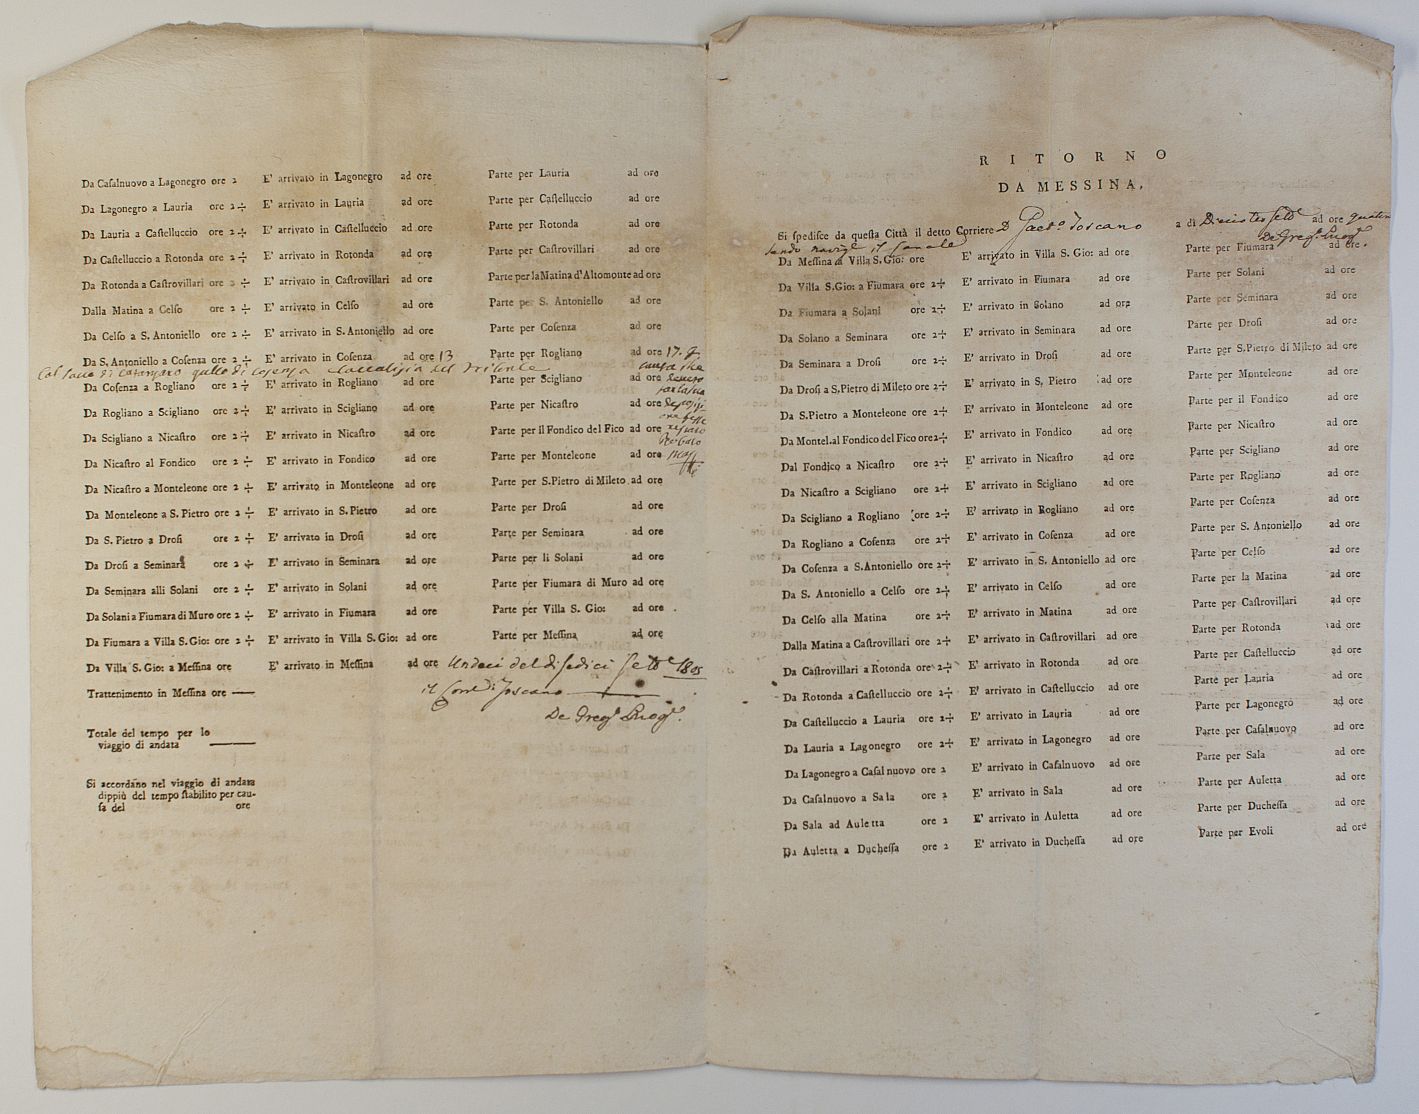 Da Casalnuovo a Lagonegro ore 2 E' arrivato in Lagonegro ad ore Parte per Lauria ad ore
Da Lagonegro a Lauria ore 2 ÷ E' arrivato in Lauria ad ore Parte per Castelluccio ad ore
Da Lauria a Castelluccio ore 2 ÷ E' arrivato in Castelluccio ad ore Parte per Rotonda ad ore
Da Castelluccio a Rotonda ore 2 ÷ E' arrivato in Rotonda ad ore Parte per Castrovillari ad ore
Da Rotonda a Castrovillari ore 2 ÷ E' arrivato in Castrovillari ad ore Parte per la Matina d'Altomonte ad ore
Dalla Matina a Celso ore 2 ÷ E' arrivato in Celso ad ore Parte per S. Antoniello ad ore
Da Celso a S. Antoniello ore 2 ÷ E' arrivato in S. Antoniello ad ore Parte per Cosenza ad ore
Da S. Antoniello a Cosenza ore 2 ÷ E' arrivato in Cosenza ad ore 13 Parte per Rogliano ad ore 17.
di Cosenza
Da Cosenza a Rogliano ore 2 ÷ E' arrivato in Rogliano ad ore Parte per Scigliano ad ore
Da Rogliano a Scigliano ore 2 ÷ E' arrivato in Scigliano ad ore Parte per Nicastro ad ore
Da Scigliano a Nicastro ore 2 ÷ E' arrivato in Nicastro ad ore Parte per il Fondico del Fico ad ore
Da Nicastro al Fondico ore 2 ÷ E' arrivato in Fondico ad ore Parte per Monteleone ad ore
Da Nicastro a Monteleone ore 2 ÷ E' arrivato in Monteleone ad ore Parte per S. Pietro di Mileto ad ore
Da Monteleone a S. Pietro ore 2 ÷ E' arrivato in S. Pietro ad ore Parte per Drosi ad ore
Da S. Pietro a Drosi ore 2 ÷ E' arrivato in Drosi ad ore Parte per Seminara ad ore
Da Drosi a Seminara ore 2 ÷ E' arrivato in Seminara ad ore Parte per li Solani ad ore
Da Seminara alli Solani ore 2 ÷ E' arrivato in Solani ad ore Parte per Fiumara di Muro ad ore
Da Solani a Fiumara di Muro ore 2 ÷ E' arrivato in Fiumara ad ore Parte per Villa S. Gio: ad ore
Da Fiumara a Villa S. Gio: ore 2 ÷ E' arrivato in Villa S. Gio: ad ore Parte per Messina ad ore
Da Villa S. Gio: a Messina ore E' arrivato in Messina ad ore Undeci del dì sedici Setbe 1805
Trattenimento in Messina ore — il Corre di Toscano
De Greg.
Totale del tempo per lo
viaggio di andata —
Si accordano nel viaggio di andata
dippiù del tempo stabilito per cau-
sa del ore
RITORNO
DA MESSINA,
Si spedisce da questa Città il detto Corriere D Gaeto Toscano a dì Diciotto Setbe ad ore
De Greg.
Da Messina a Villa S. Gio: ore E' arrivato in Villa S. Gio: ad ore Parte per Fiumara ad ore
Da Villa S. Gio: a Fiumara ore 2÷ E' arrivato in Fiumara ad ore Parte per Solani ad ore
Da Fiumara a Solani ore 2÷ E' arrivato in Solano ad ore Parte per Seminara ad ore
Da Solano a Seminara ore 2÷ E' arrivato in Seminara ad ore Parte per Drosi ad ore
Da Seminara a Drosi ore 2÷ E' arrivato in Drosi ad ore Parte per S. Pietro di Mileto ad ore
Da Drosi a S. Pietro di Mileto ore 2÷ E' arrivato in S. Pietro ad ore Parte per Monteleone ad ore
Da S. Pietro a Monteleone ore 2÷ E' arrivato in Monteleone ad ore Parte per il Fondico ad ore
Da Montel. al Fondico del Fico ore 2÷ E' arrivato in Fondico ad ore Parte per Nicastro ad ore
Dal Fondico a Nicastro ore 2÷ E' arrivato in Nicastro ad ore Parte per Scigliano ad ore
Da Nicastro a Scigliano ore 2÷ E' arrivato in Scigliano ad ore Parte per Rogliano ad ore
Da Scigliano a Rogliano ore 2÷ E' arrivato in Rogliano ad ore Parte per Cosenza ad ore
Da Rogliano a Cosenza ore 2÷ E' arrivato in Cosenza ad ore Parte per S. Antoniello ad ore
Da Cosenza a S. Antoniello ore 2÷ E' arrivato in S. Antoniello ad ore Parte per Celso ad ore
Da S. Antoniello a Celso ore 2÷ E' arrivato in Celso ad ore Parte per la Matina ad ore
Da Celso alla Matina ore 2÷ E' arrivato in Matina ad ore Parte per Castrovillari ad ore
Dalla Matina a Castrovillari ore 2÷ E' arrivato in Castrovillari ad ore Parte per Rotonda ad ore
Da Castrovillari a Rotonda ore 2÷ E' arrivato in Rotonda ad ore Parte per Castelluccio ad ore
Da Rotonda a Castelluccio ore 2÷ E' arrivato in Castelluccio ad ore Parte per Lauria ad ore
Da Castelluccio a Lauria ore 2÷ E' arrivato in Lauria ad ore Parte per Lagonegro ad ore
Da Lauria a Lagonegro ore 2÷ E' arrivato in Lagonegro ad ore Parte per Casalnuovo ad ore
Da Lagonegro a Casalnuovo ore 2 E' arrivato in Casalnuovo ad ore Parte per Sala ad ore
Da Casalnuovo a Sala ore 2 E' arrivato in Sala ad ore Parte per Auletta ad ore
Da Sala ad Auletta ore 2 E' arrivato in Auletta ad ore Parte per Duchessa ad ore
Da Auletta a Duchessa ore 2 E' arrivato in Duchessa ad ore Parte per Evoli ad ore